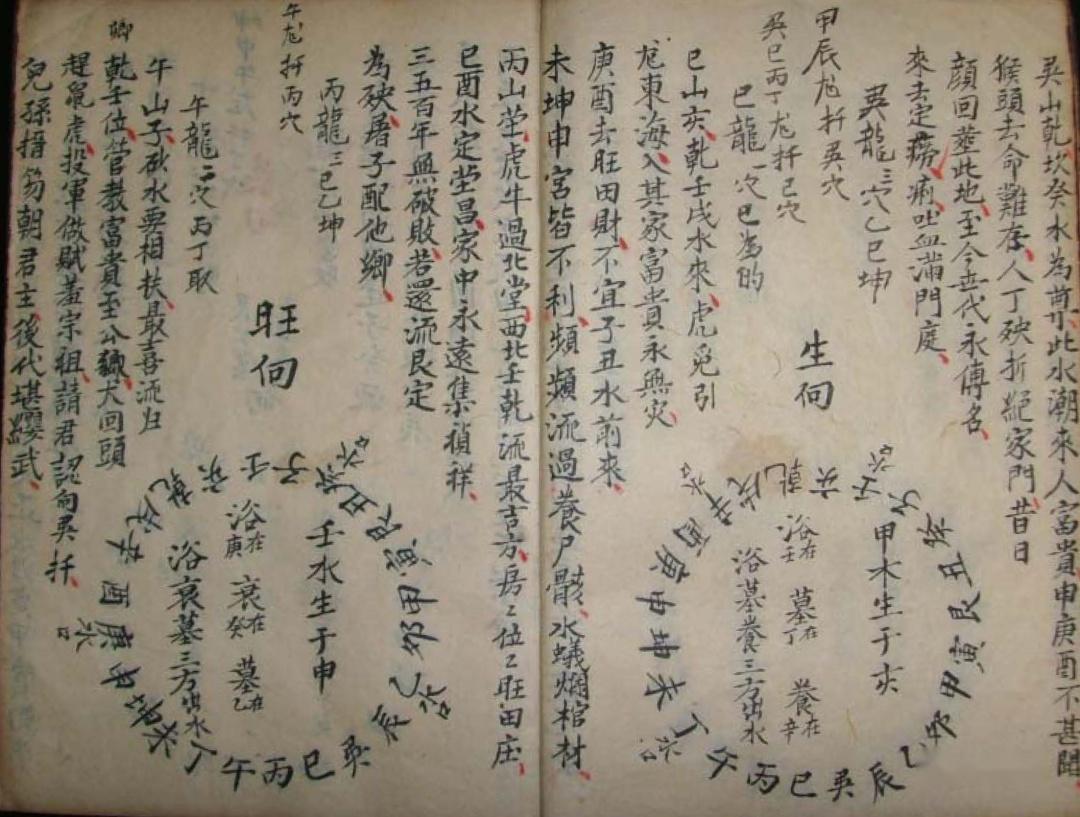 吳山乾坎癸水為尊此水潮來人富貴申庚酉不甚聞
猴頭去命難存人丁殀折絕家門昔日
顔回塟此地至今世代永傳名
來去定癆痢吐血滿門庭
吳龍三穴乙巳坤
甲辰尨扦吳穴
吳巳丙丁尨扦巳穴
巳龍一穴巳為的
巳山亥乾壬戌水來虎兔引
尨東海入其家富貴永無灾
庚酉去旺田財不宜子丑水前來
未坤申宮皆不利頻頻流過養尸骸水蟻爛棺材
生向
甲木生于亥
浴在壬 墓在丁 養在辛
浴墓養三方出水
乾亥壬子癸丑艮寅甲卯乙辰吳巳丙午丁未坤申庚酉辛戌
丙山塋虎牛過北堂西北壬乾流最吉方房〻位〻旺田庄
巳酉水定塋昌家中永遠集禎祥
三五百年無破敗若還流艮定
為殀屠子配他鄉
丙龍三巳乙坤
午尨扦丙穴
午龍二穴丙丁取
午山子癸水要相扶最喜流归
乾壬位管教富貴至公卿犬回頭
趕鼠虎投軍做賊羞宗祖請君認向吳扦
兒孫搢笏朝君主後代堪纓武
旺向
壬水生于申
浴在庚 衰在癸 墓在乙
浴衰墓三方出水
壬子癸丑艮寅甲卯乙辰吳巳丙午丁未坤申庚酉辛戌乾亥